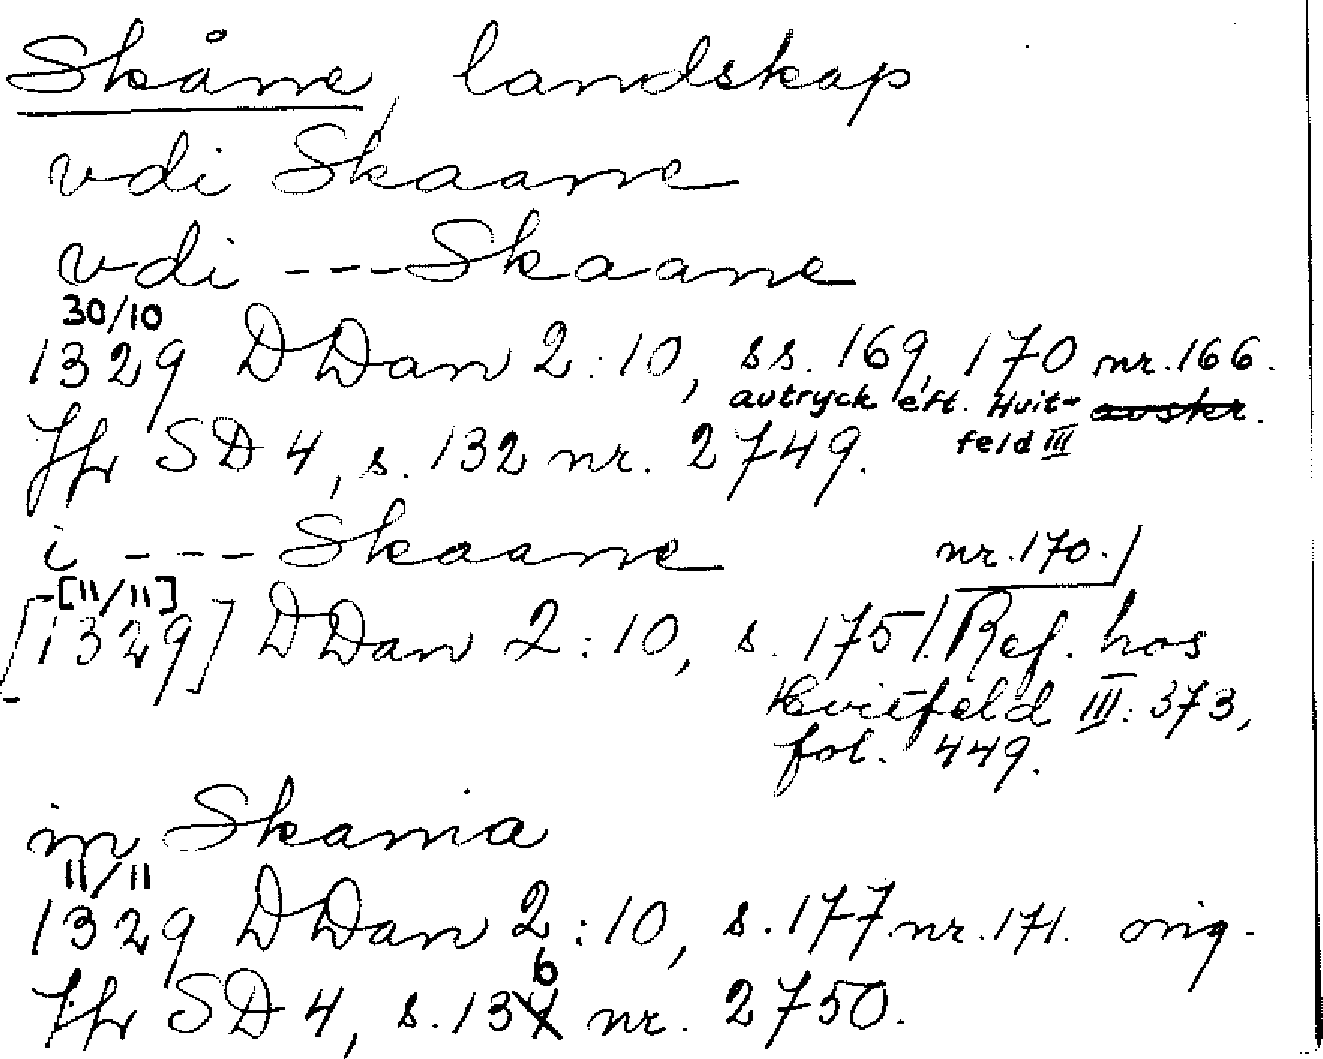 Skåne, landskap
vdi Skaane
vdi --- Skaane
30/10
1329 DDan 2:10, ss. 169, 170 nr. 166.
avtryck eft. Huit-
feld III
Jfr SD 4, s. 132 nr. 2749.
i --- Skaane nr. 170.
[11/11]
[1329] DDan 2:10, s. 175. Ref. hos
Hvitfeld III: 373,
fol. 449.
in Skania
11/11
1329 DDan 2:10, s. 177 nr. 171. orig.
Jfr SD 4, s. 136 nr. 2750.